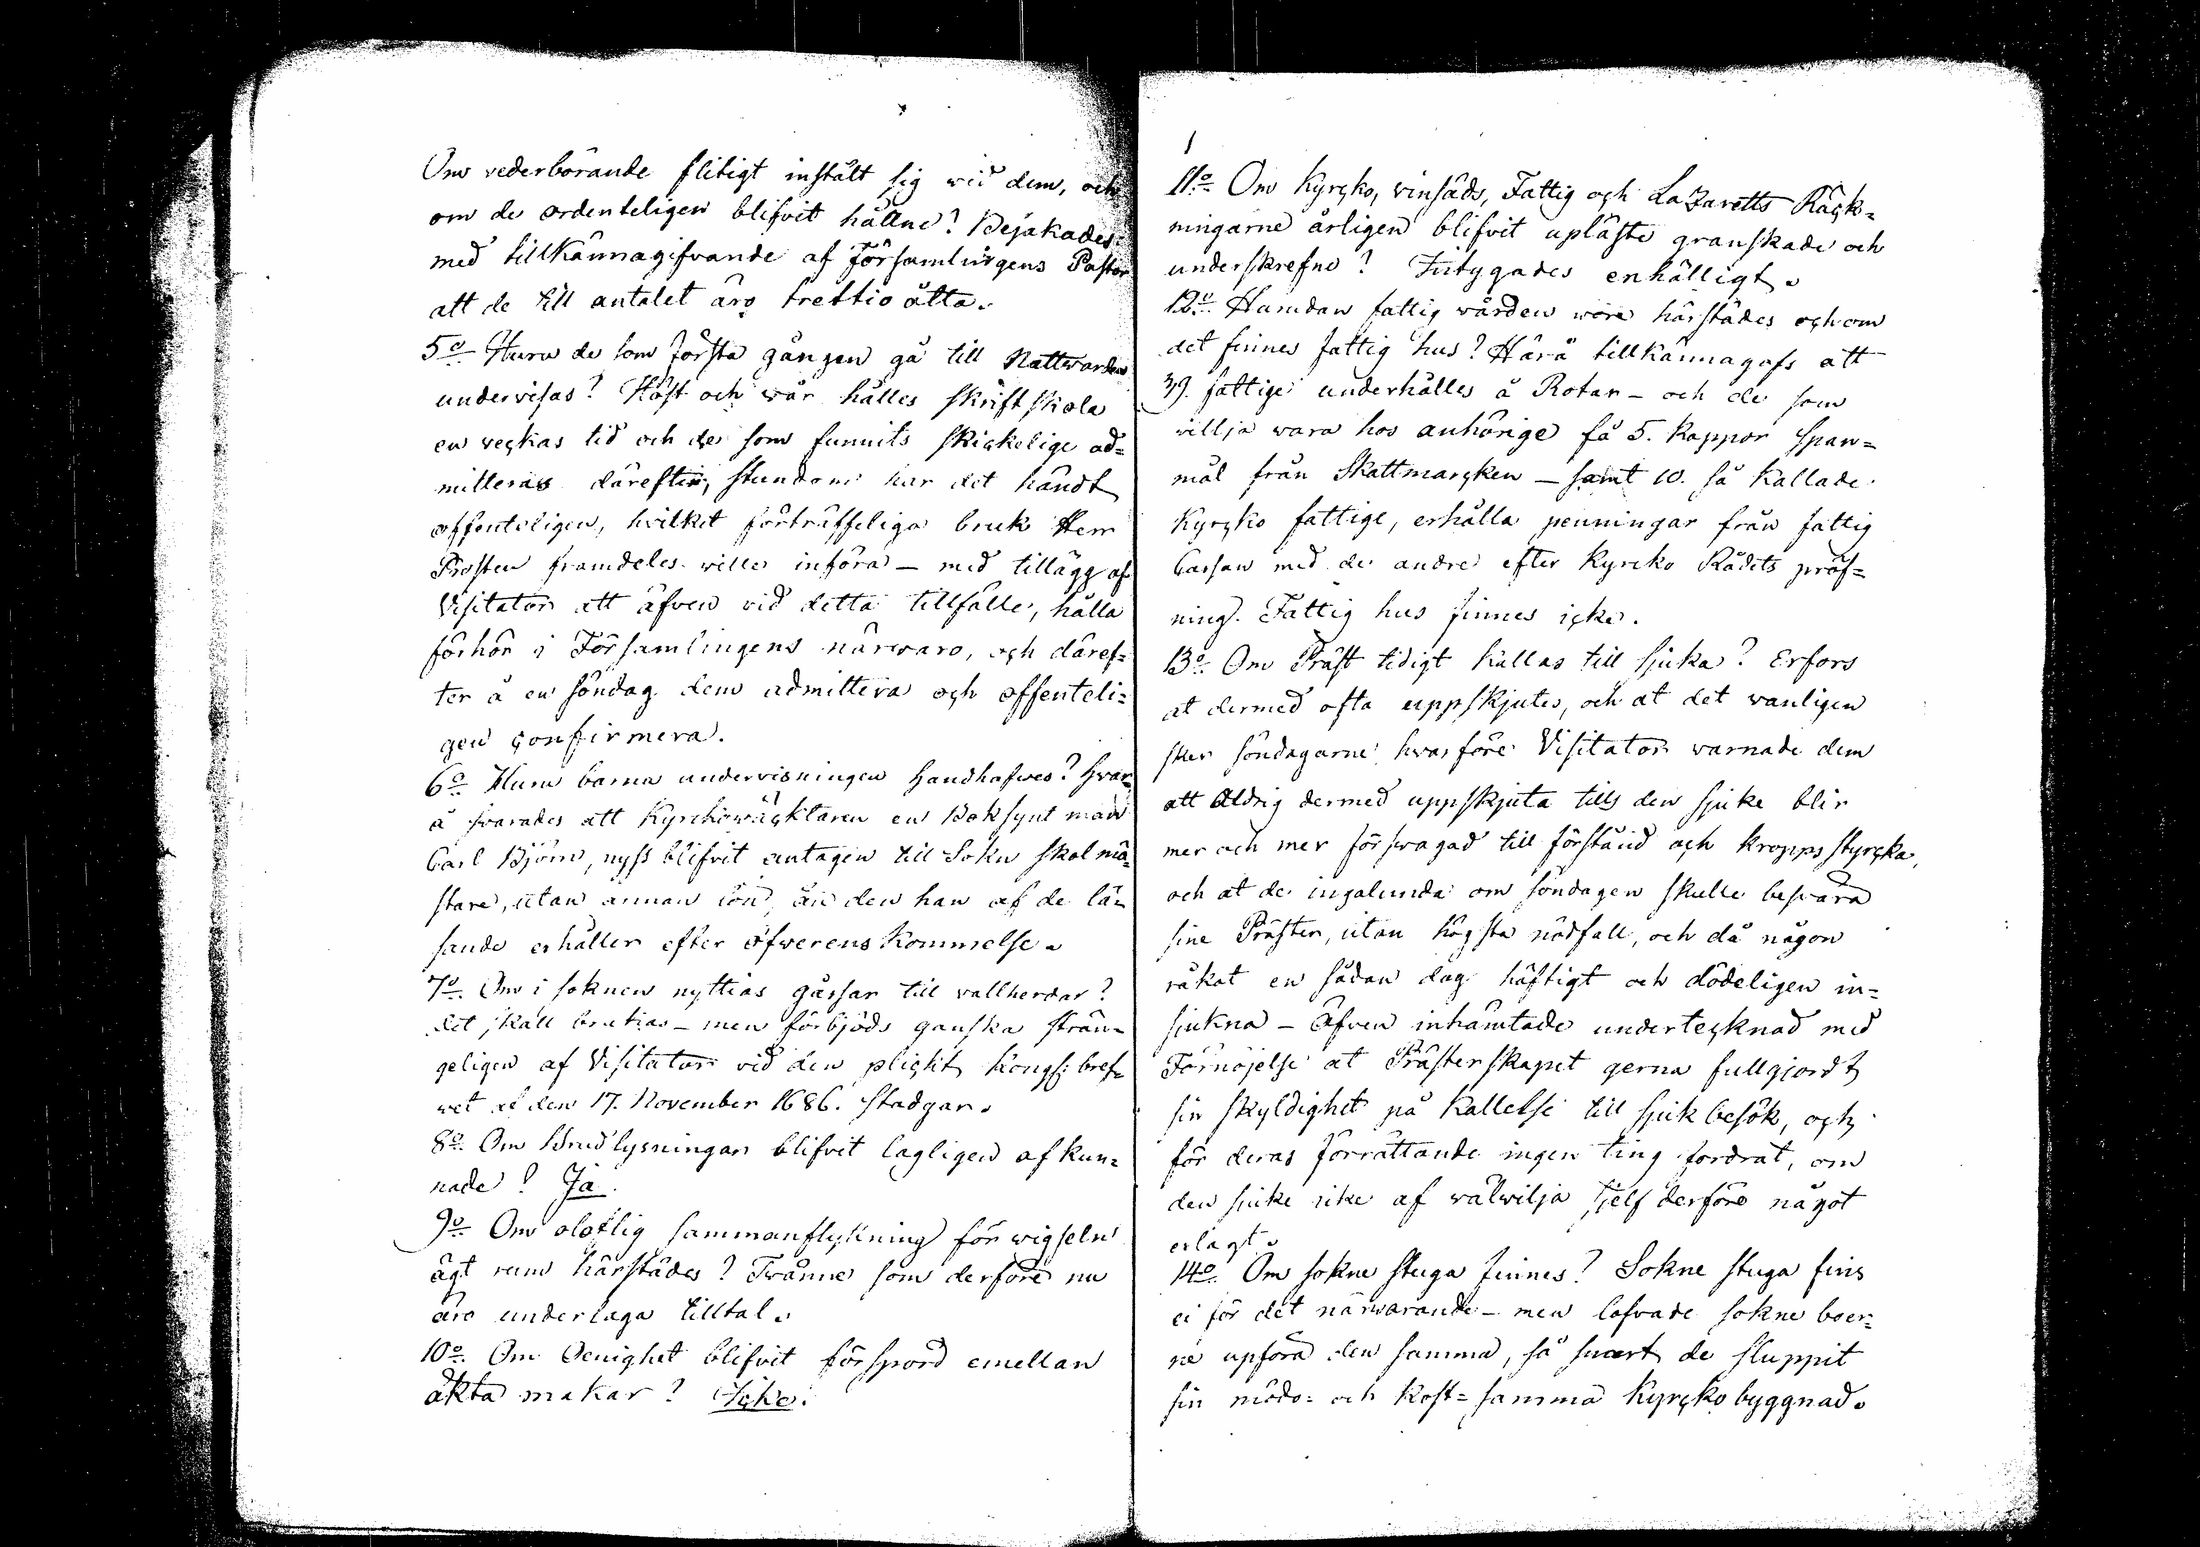 Om vederbörande flitigt instält sig wid dem, och
om de ordenteligen blifvit hållne? Bejakades:
med tillkännagifvande af Församlingens Pastor
att de till antalet äro trettio åtta.
5o Huru de som första gången gå till Nattwarden
undervisas? Höst och wår hålles skriftskola
en veckas tid och de som funnits skickelige ad=
mitteras därefter, stundom har det händt
offenteligen, hvilket förträffeliga bruk Herr
Prosten framdeles wille införa – med tillägg af
Visitator att äfven vid detta tillfälle, hålla
förhör i Församlingens närwaro, och däref=
ter å en söndag dem admittera och offenteli=
gen confirmera.
6o Huru barna undervisningen handhafwes? hvar=
å svarades att Kyrckowäcktaren en Boksynt man
Carl Björn, nyss blifvit antagen till Sokn skolmä=
stare, utan annan lön, än den han af de lä=
sande erhåller efter öfwerenskommelse.
7o Om i soknen nyttias gåssar till vallherdar?
det skall brukas – men förbjöds ganska strän=
geligen af Visitator vid den plickt kongl: bref=
wet af den 17. November 1686. stadgar.
8o Om Brudlysningar blifvit lagligen afkun=
nade? Ja.
9o Om oloflig sammanflyttning för wigseln
ägt rum härstädes? Tvänne som derföre nu
äro under laga tilltal.
10o Om Oenighet blifvit förspord emellan
äkta makar? Icke.
11o Om Kyrcko, vinsäds, Fattig och Lazaretts Räck=
ningarne årligen blifvit upläste granskade och
underskrefne? Intygades enhälligt.
12o Hurudan fattig vården wore härstädes och om
det finnes fattig hus? Härå tillkännagafs att
39. fattige underhålles å Rotar – och de som
villja wara hos anhörige få 5. Kappor span=
mål från Skattmarcken – samt 10. så kallade
Kyrcko fattige, erhålla penningar från fattig
Cassan med de andre efter Kyrcko Rådets pröf=
ning. Fattig hus finnes icke.
13o Om Präst tidigt kallas till sjuka? Erfors
at dermed ofta uppskjutes, och at det vanligen
sker söndagarne hvarföre Visitator varnade dem
att Aldrig dermed uppskjuta tills den sjuke blir
mer och mer förswagad till förstånd och kropps styrcka,
och at de ingalunda om söndagen skulle besvära
sine Präster, utan högsta nödfall, och då någon
råkat en sådan dag häftigt och dödeligen in=
sjukna – Äfven inhämtade undertecknad med
Förnöjelse at Prästerskapet gerna fullgjordt
sin skyldighet på Kallelse till sjukbesök, och
för deras förrättande ingen ting fordrat, om
den sjuke icke af välvilja sjelf derföre något
erlagt.
14o Om sokne stuga finnes? Sokne stuga fins
ei för det närvarande – men lofvade sokne boer=
ne upföra den samma, så snart de sluppit
sin mödo= och kost=samma Kyrcko byggnad.